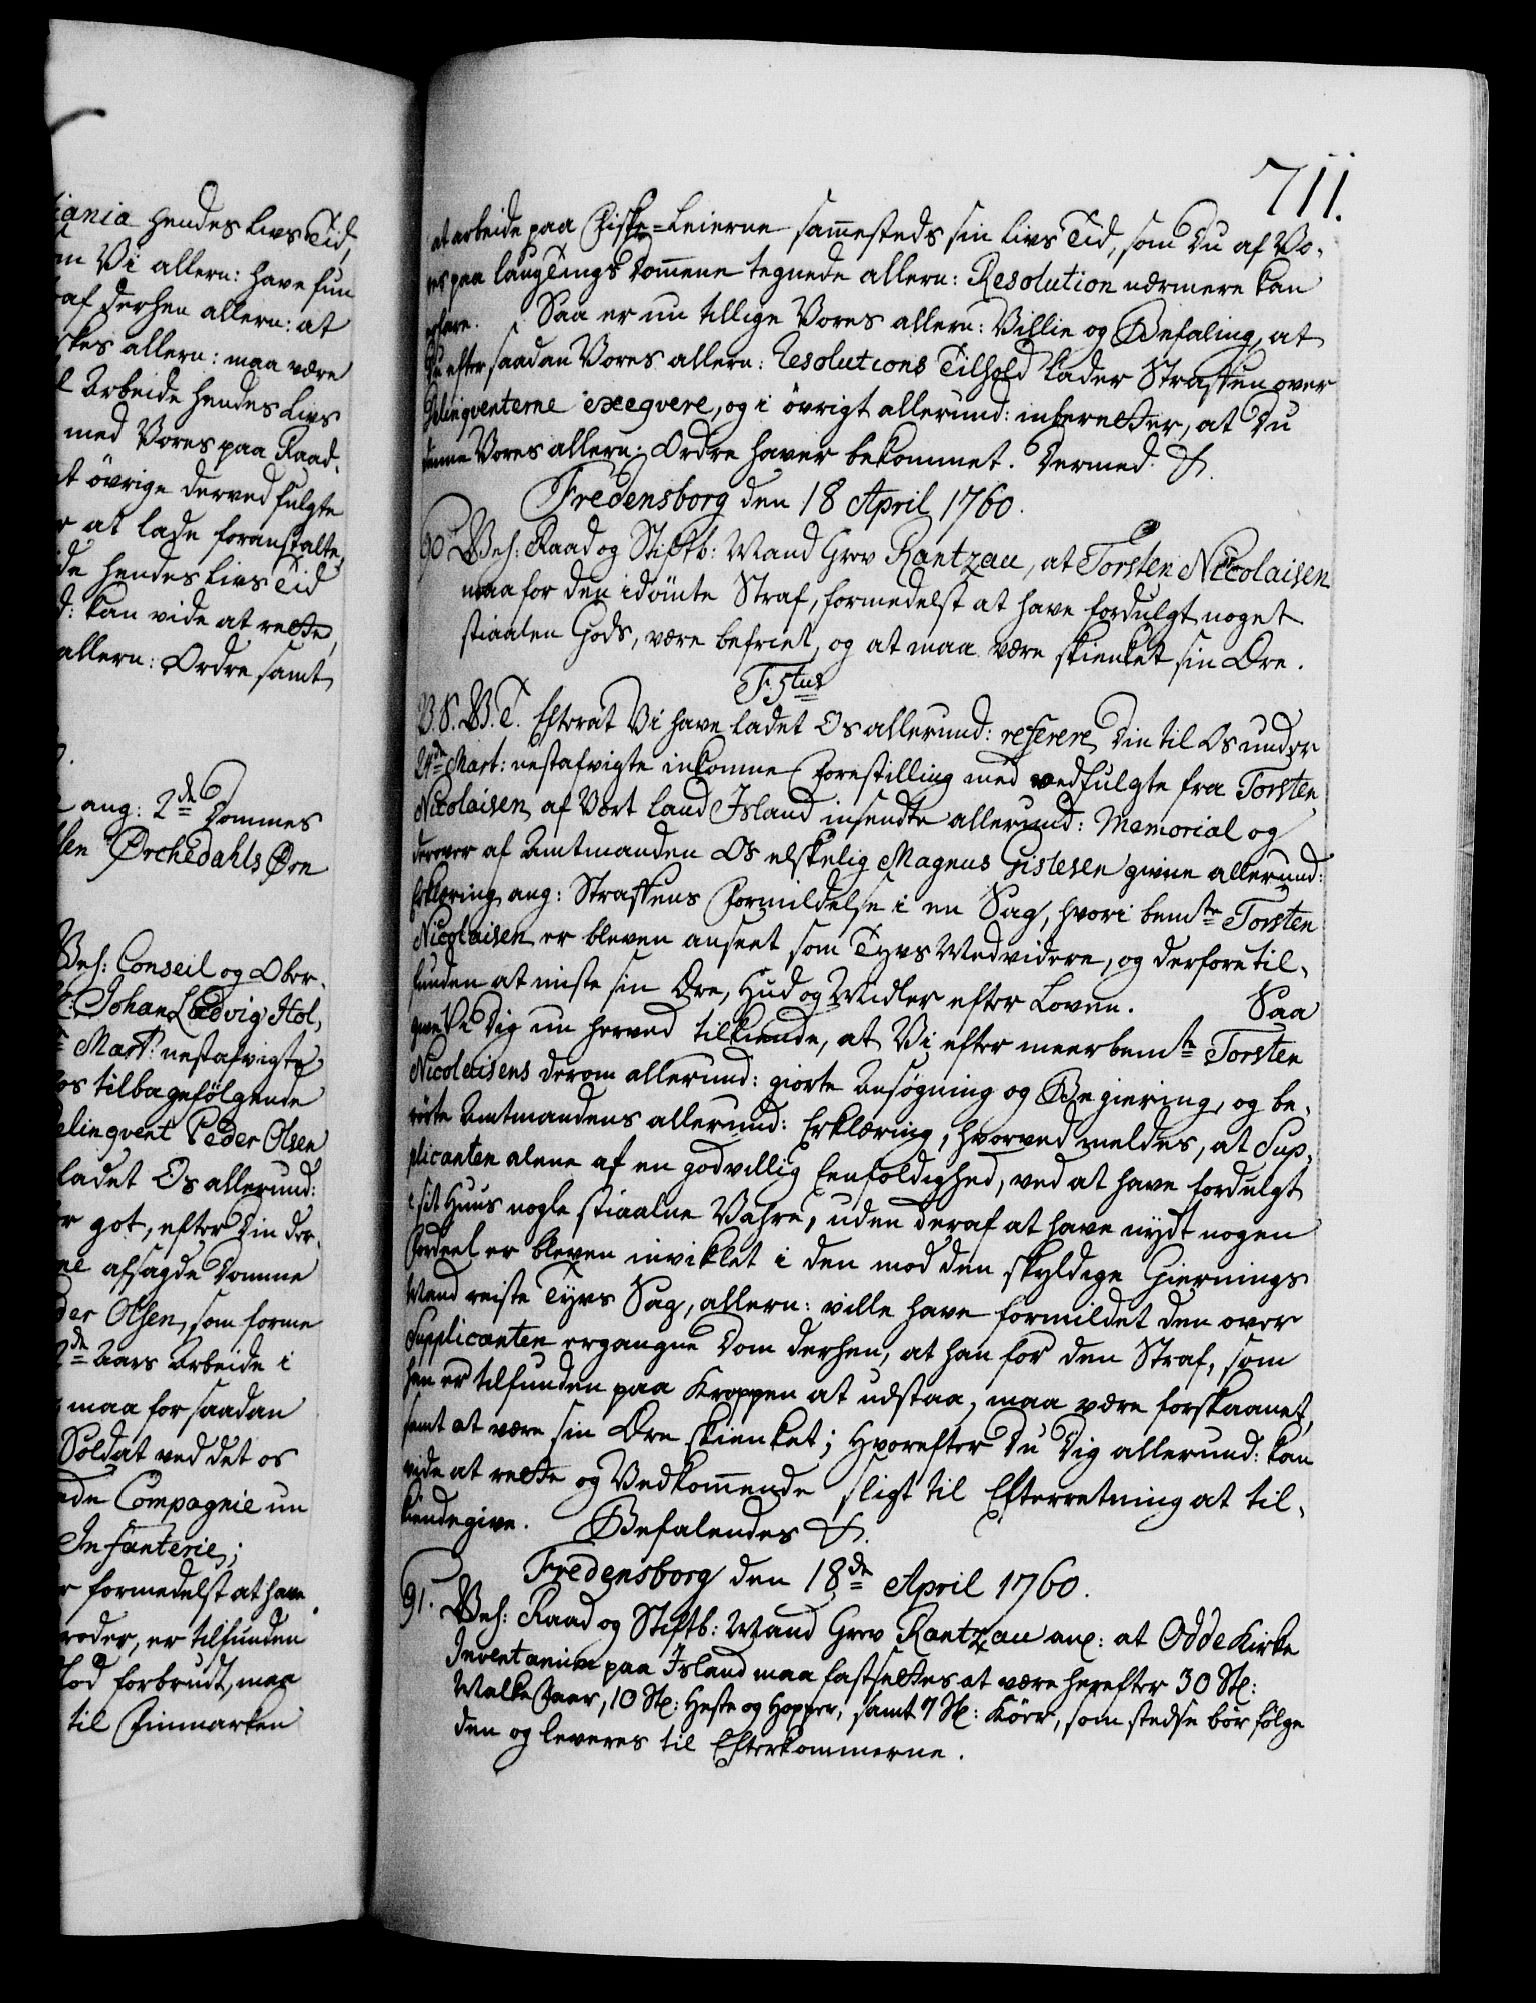 iania hendes Livs Tid,
m Vi allern: have fun
af derhen allern: at
rkes allern: maa være
l Arbeide hendes Livs
med Vores paa Raad-
t øvrige derved fulgte
r at lade foranstalte,
de hendes Livs Tid
d: kan vide at rette,
allern: Ordre samt
ang: 2de Dommes
lsen Orchedahls Øre
Geh: Conseil og Ober-
Johan Ludvig Hol,
Mart: nestafvigte
os tilbagefølgende
elinqvent Peder Olsen
ladet Os allerund:
r got, efter Din der-
ne afsagde Domme
der Olsen, som forme
2de Aars Arbeide i
maa for saadan
Soldat ved det os
nde Compagnie un
Infanterie;
r formedelst at have
roder, er tilfunden
lod forbrudt, maa
til Finmarken
711.
at arbeide paa Fiske-Leierne sammesteds sin Livs Tid, som Du af Vo-
res paa Laugtings Dommene tegnede allern: Resolution nærmere kan
erfare. Saa er nu tillige Vores allern: Villie og Befaling, at
Du efter saadan Vores allern: Resolutions Tilhold lader Straffen over
Delinqventerne exeqvere, og i øvrigt allerund: inberetter, at Du
denne Vores allern: Ordre haver bekommet. Dermed &.
Fredensborg den 18 April 1760.
90. Geh: Raad og Stiftb: Mand Grev Rantzau, at Torsten Nicolaisen
maa for den idømte Straf, formedelst at have fordulgt noget
stiaalen Gods, være befriet, og at maa være skienket sin Ære.
F. 5tus
V. S. G. T. Efterat Vi have ladet Os allerund: referere Din til Os under
24de Mart: nestafvigte inkomne Forestilling med vedfulgte fra Torsten
Nicolaisen af Vort Land Island insendte allerund: Memorial og
derover af Amtmanden Os elskelig Magnus Gislesen givne allerund:
Erklæring ang: Straffens Formildelse i en Sag, hvori bemte Torsten
Nicolaisen er bleven anseet som Tyvs Medvidere, og derfore til-
funden at miste sin Ære, Hud og Midler efter Loven. Saa
give Vi Dig nu herved tilkiende, at Vi efter meerbemte Torsten
Nicolaisens derom allerund: giorte Ansøgning og Begiering, og be-
rørte Amtmandens allerund: Erklæring, hvorved meldes, at Sup-
plicanten alene af en godvillig Eenfoldighed, ved at have fordulgt
i sit Huus nogle stiaalne Vahre, uden deraf at have nydt nogen
Fordeel er bleven inviklet i den mod den skyldige Giernings
Mand reiste Tyvs Sag, allern: ville have formildet den over
Supplicanten ergangne Dom derhen, at han for den Straf, som
han er tilfunden paa Kroppen at udstaa, maa være forskaanet,
samt at være sin Ære skienket; Hvorefter Du Dig allerund: kan
vide at rette og Vedkommende sligt til Efterretning at til-
kiendegive. Befalendes &.
Fredensborg den 18de April 1760.
91. Geh: Raad og Stiftb: Mand Grev Rantzau ang: at Odde Kirke
Inventarium paa Island maa fastsettes at være herefter 30 St:
Malke Faar, 10 St: Heste og Hopper, samt 7 St: Køer, som stedse bør følge
den og leveres til Efterkommerne.